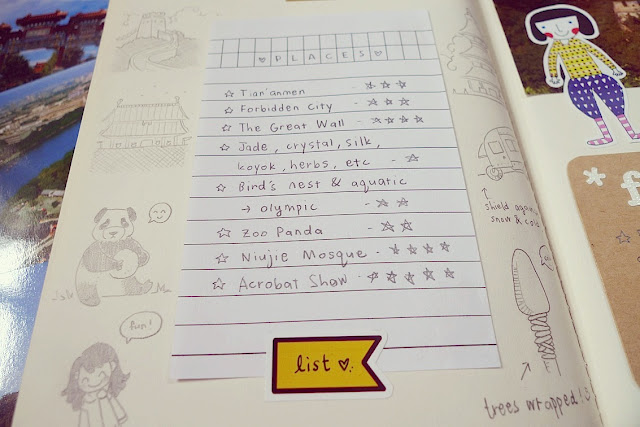 ♡ PLACES ♡
☆ Tian'anmen - ☆☆☆
☆ Forbidden City - ☆☆☆
☆ The Great Wall - ☆☆☆☆
☆ Jade, crystal, silk,
koyok, herbs, etc - ☆
☆ Bird's nest & aquatic
→ olympic - ☆☆
☆ Zoo Panda - ☆☆
☆ Niujie Mosque - ☆☆☆☆
☆ Acrobat Show - ☆☆☆☆☆
list ♡
fun!
shield again
snow & cold
trees wrapped!